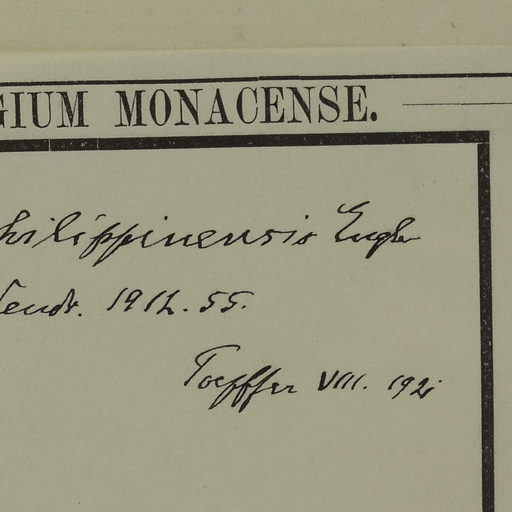 GIUM MONACENSE.
hilippinensis Engler
Dendr. 1912. 55.
Toepffer VIII. 192